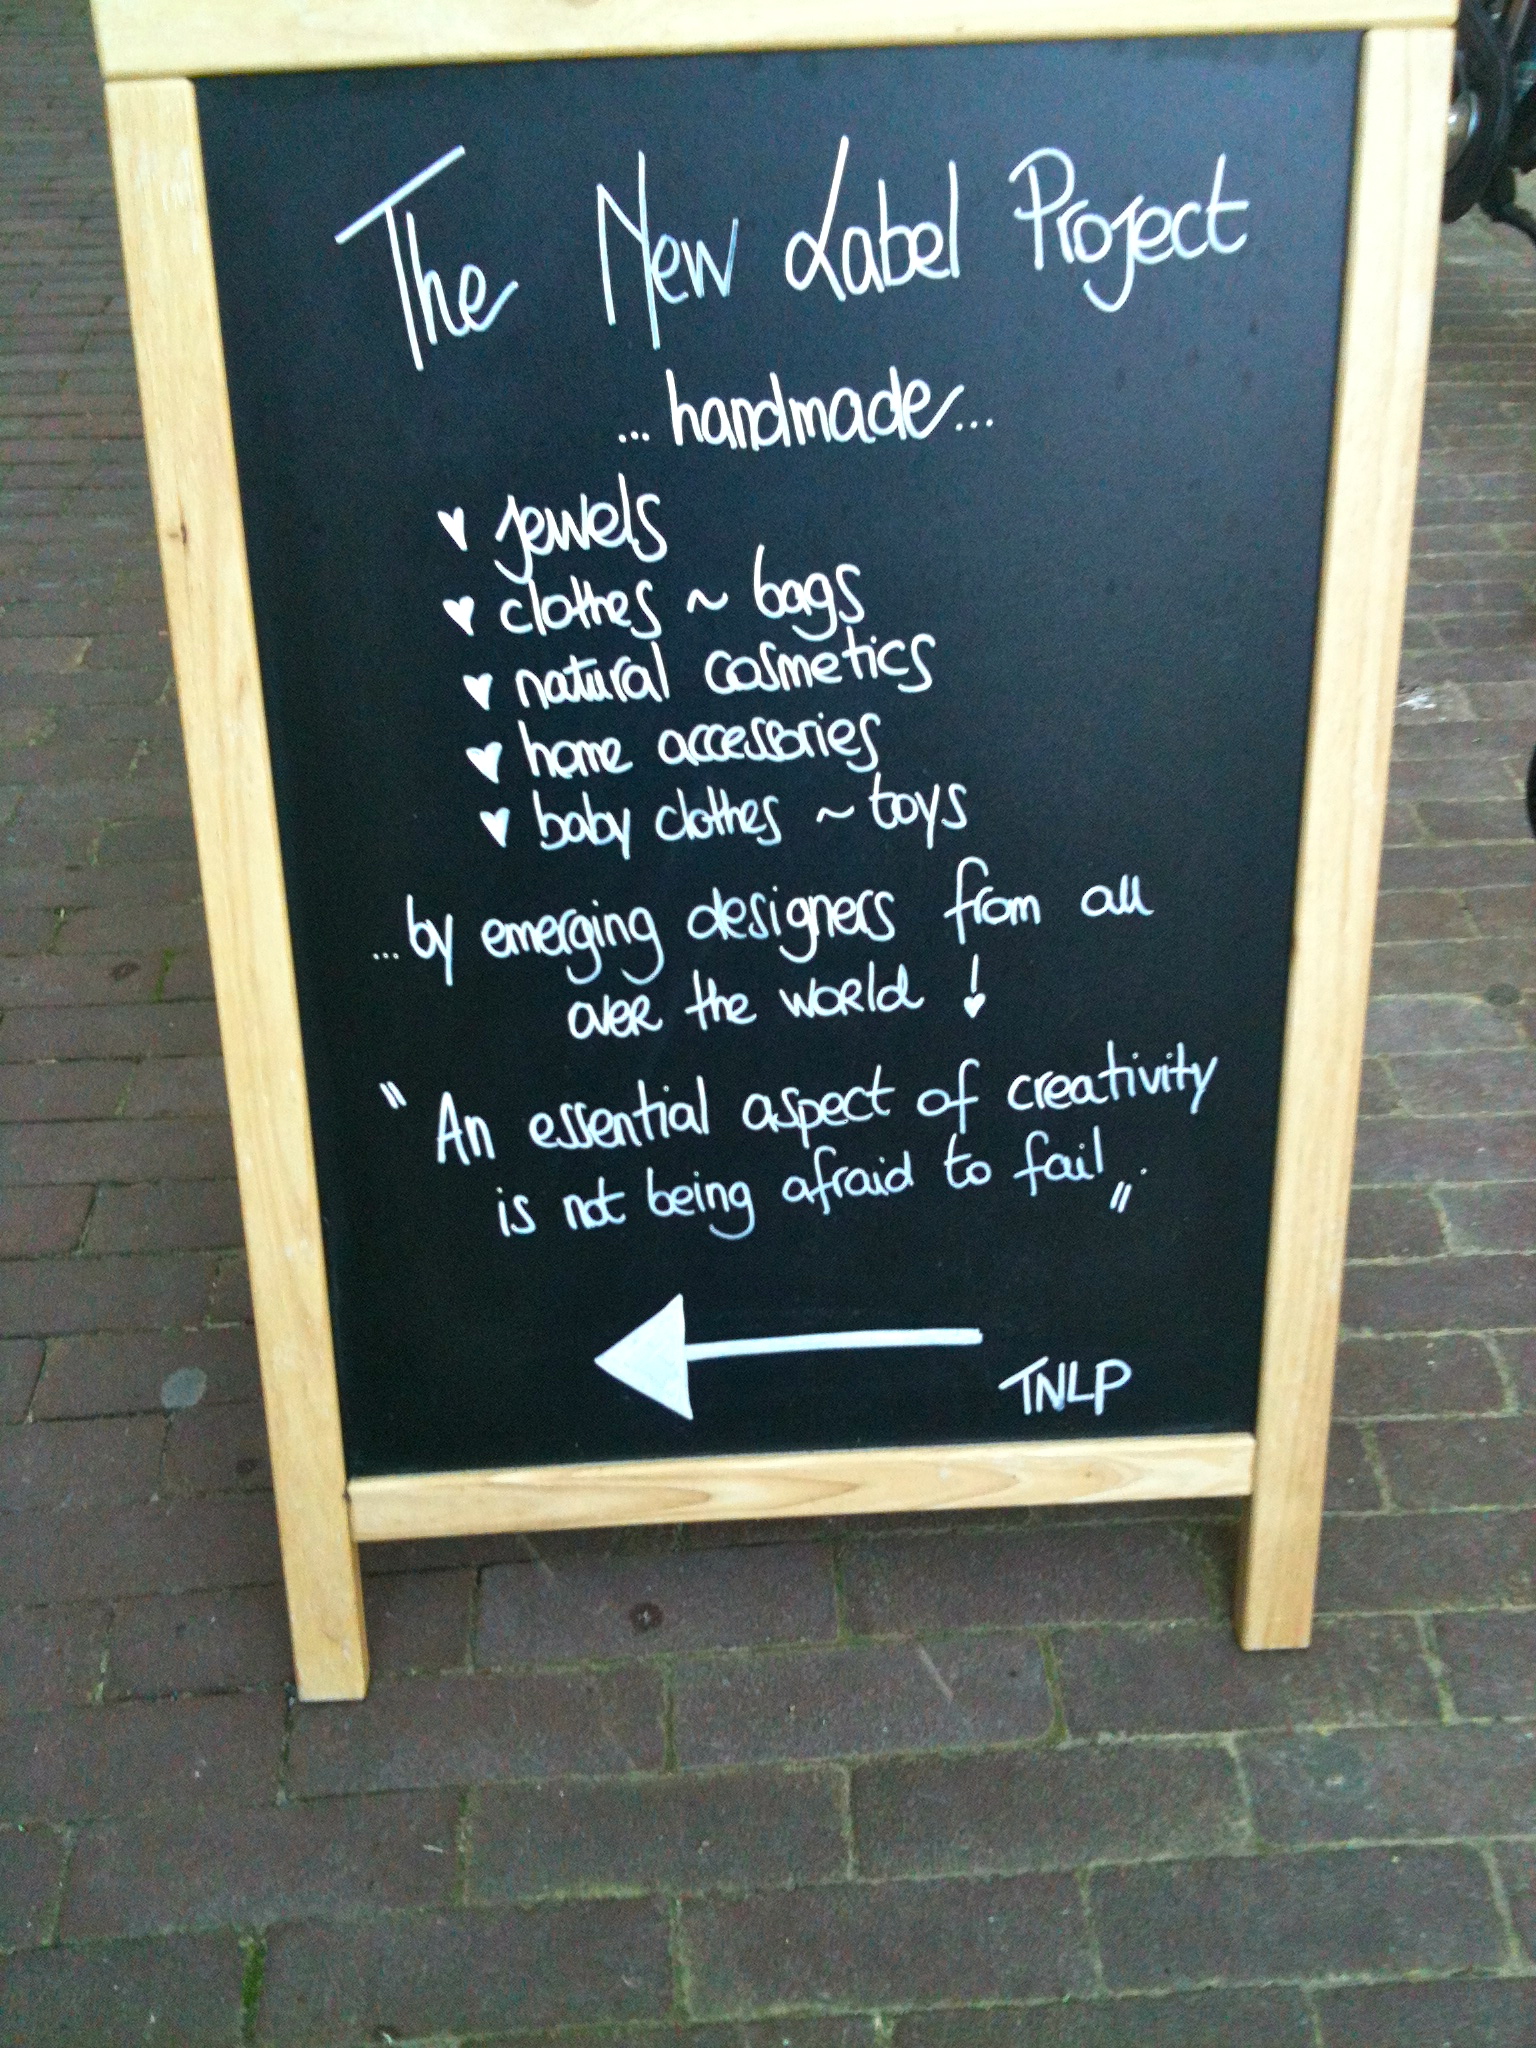 The New Label Project
... handmade...
♥ jewels
♥ clothes ~ bags
♥ natural cosmetics
♥ home accessories
♥ baby clothes ~ toys
...by emerging designers from all
over the world !
" An essential aspect of creativity
is not being afraid to fail. "
TNLP